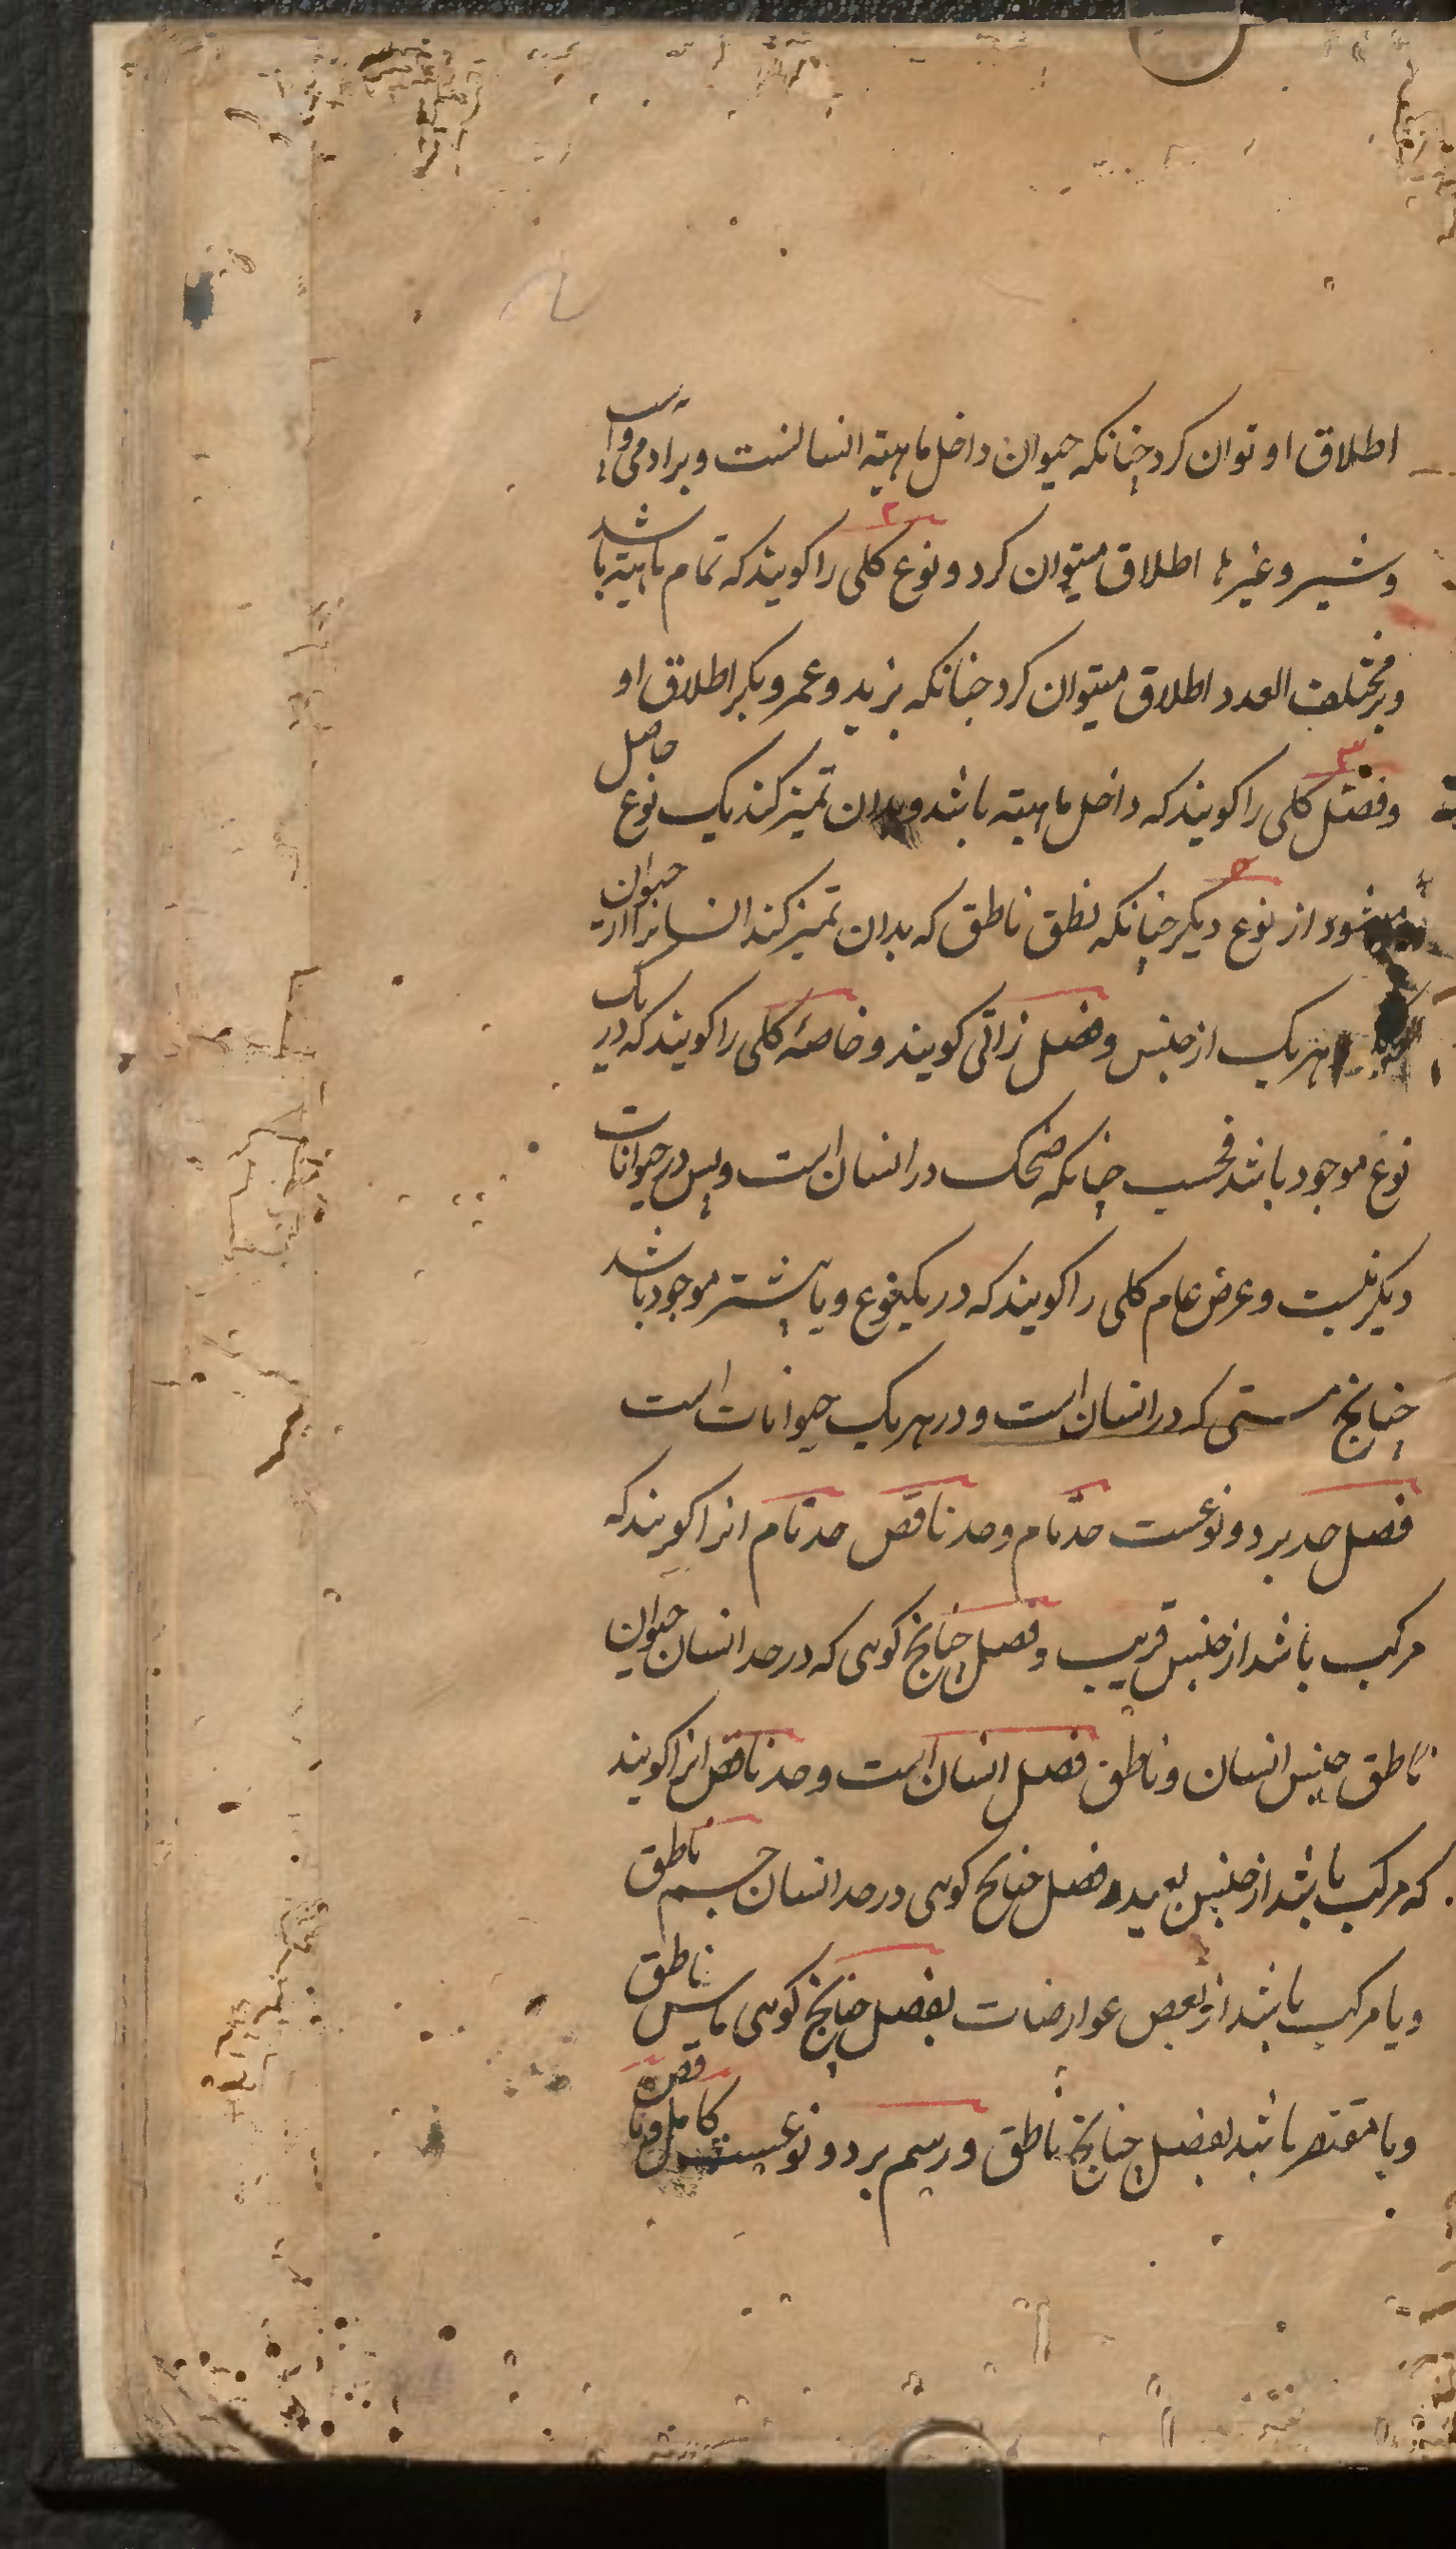 اطلاق او توان کرد چنانکه حیوان داخل ماهیته انسانست و بر ادمی و اسپ
و شیر و غیرها اطلاق میتوان کرد و نوع کلی را کویند که تمام ماهیته باشد
و بر مختلف العدد اطلاق میتوان کرد جنانکه بزید و عمر و بکر اطلاق او
و فصل کلی را کویند که داخل ماهیته باشد و بدان تمیز کند یک نوع حاصل
میشود از نوع دیکر چنانکه نطق ناطق که بدان تمیز کند انسانرا از حیوان
هر یک از جنس و فصل زاتی کویند و خاصهٔ کلی را کویند که در یک
نوع موجود باشد فحسب چنانکه ضحک در انسان است و بس در حیوانات
دیکر نیست و عرض عام کلی را کویند که در یکنوع و یا بیشتر موجود باشد
چنانچ مستی که در انسان است و در هر یک حیوانات است
فصل حد بر دو نوعست حد تام و حد ناقص حد تام انرا کویند که
مرکب باشد از جنس قریب و فصل چنانچ کوهی که در حد انسان حیوان
ناطق جنس انسان و ناطق فصل انسان است و حد ناقص انرا کویند
که مرکب باشد از جنس بعید و فصل جنانچ کوهی در حد انسان جسم ناطق
و یا مرکب باشد از بعض عوارضات بفصل چنانچ کوهی ماسی ناطق
و یا مقتصر باشد بفصل چنانچ ناطق و رسم بر دو نوعست کامل و ناقص